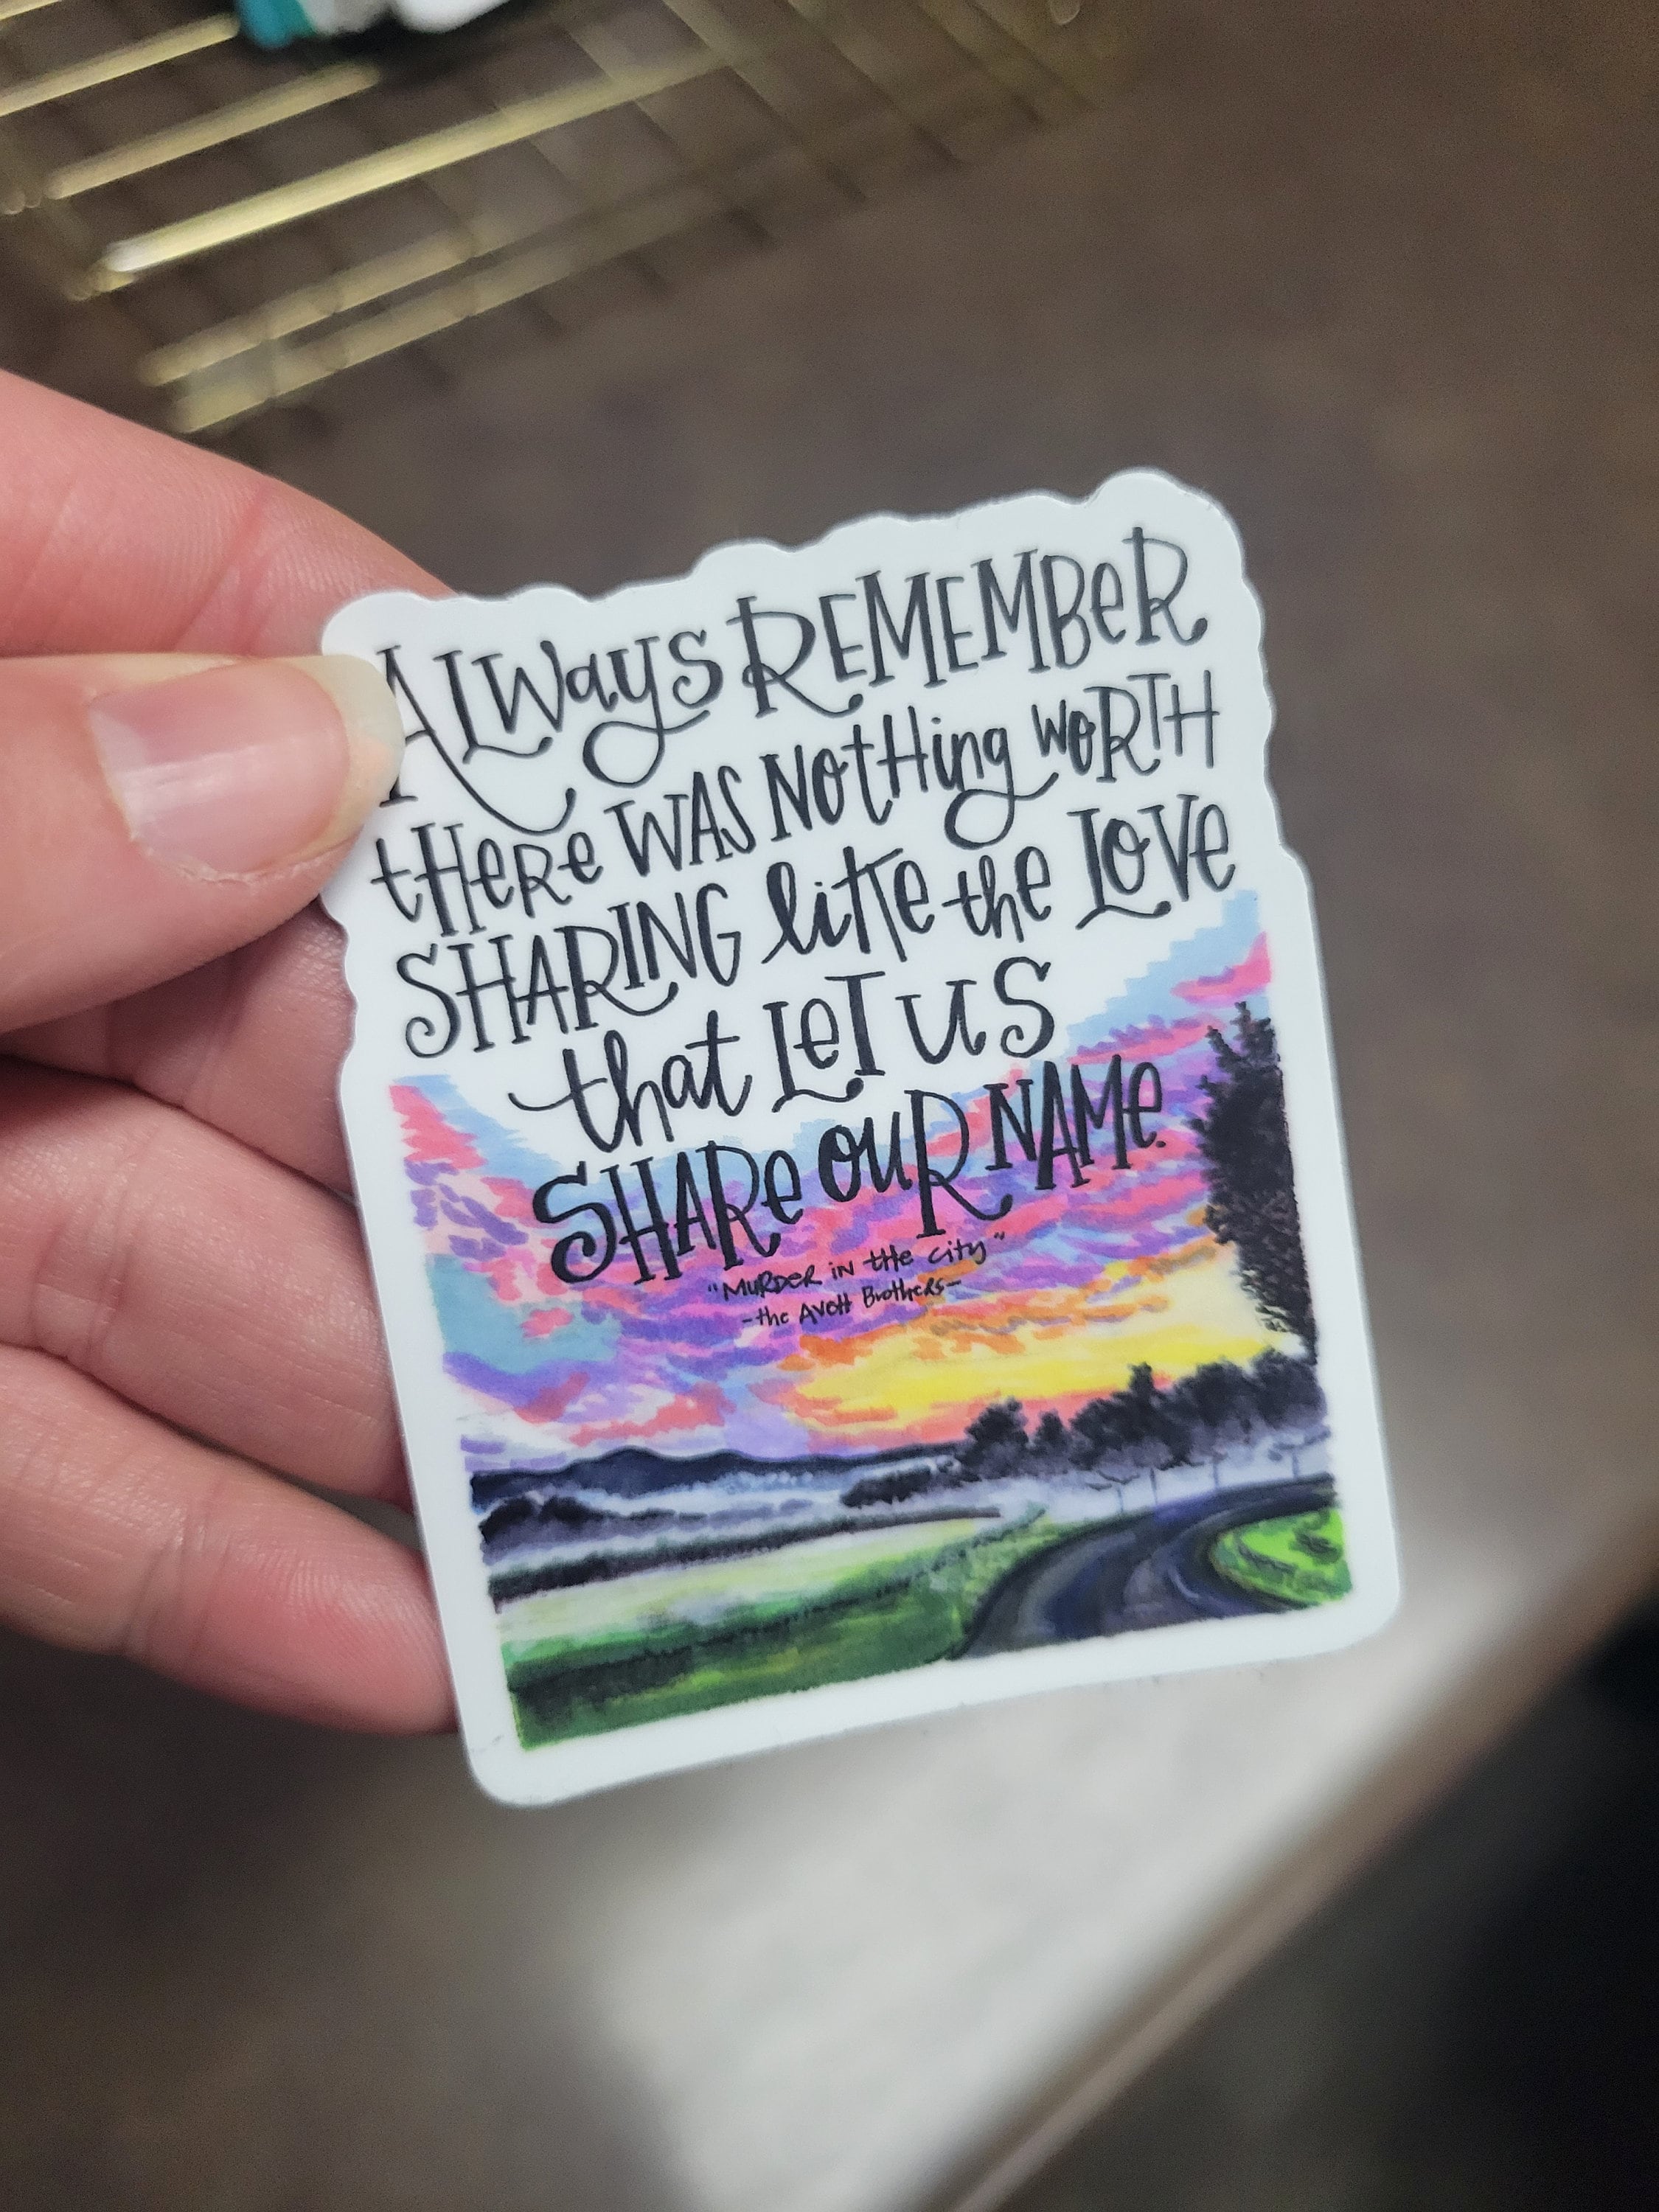 ALWays REMEMBeR
tHeRe WAS NOtHing WoRTH
SHARING liKe the LOVe
that LeT uS
SHARe ouR NAMe.
"MuRDeR iN tHe City"
-the Avett Brothers-